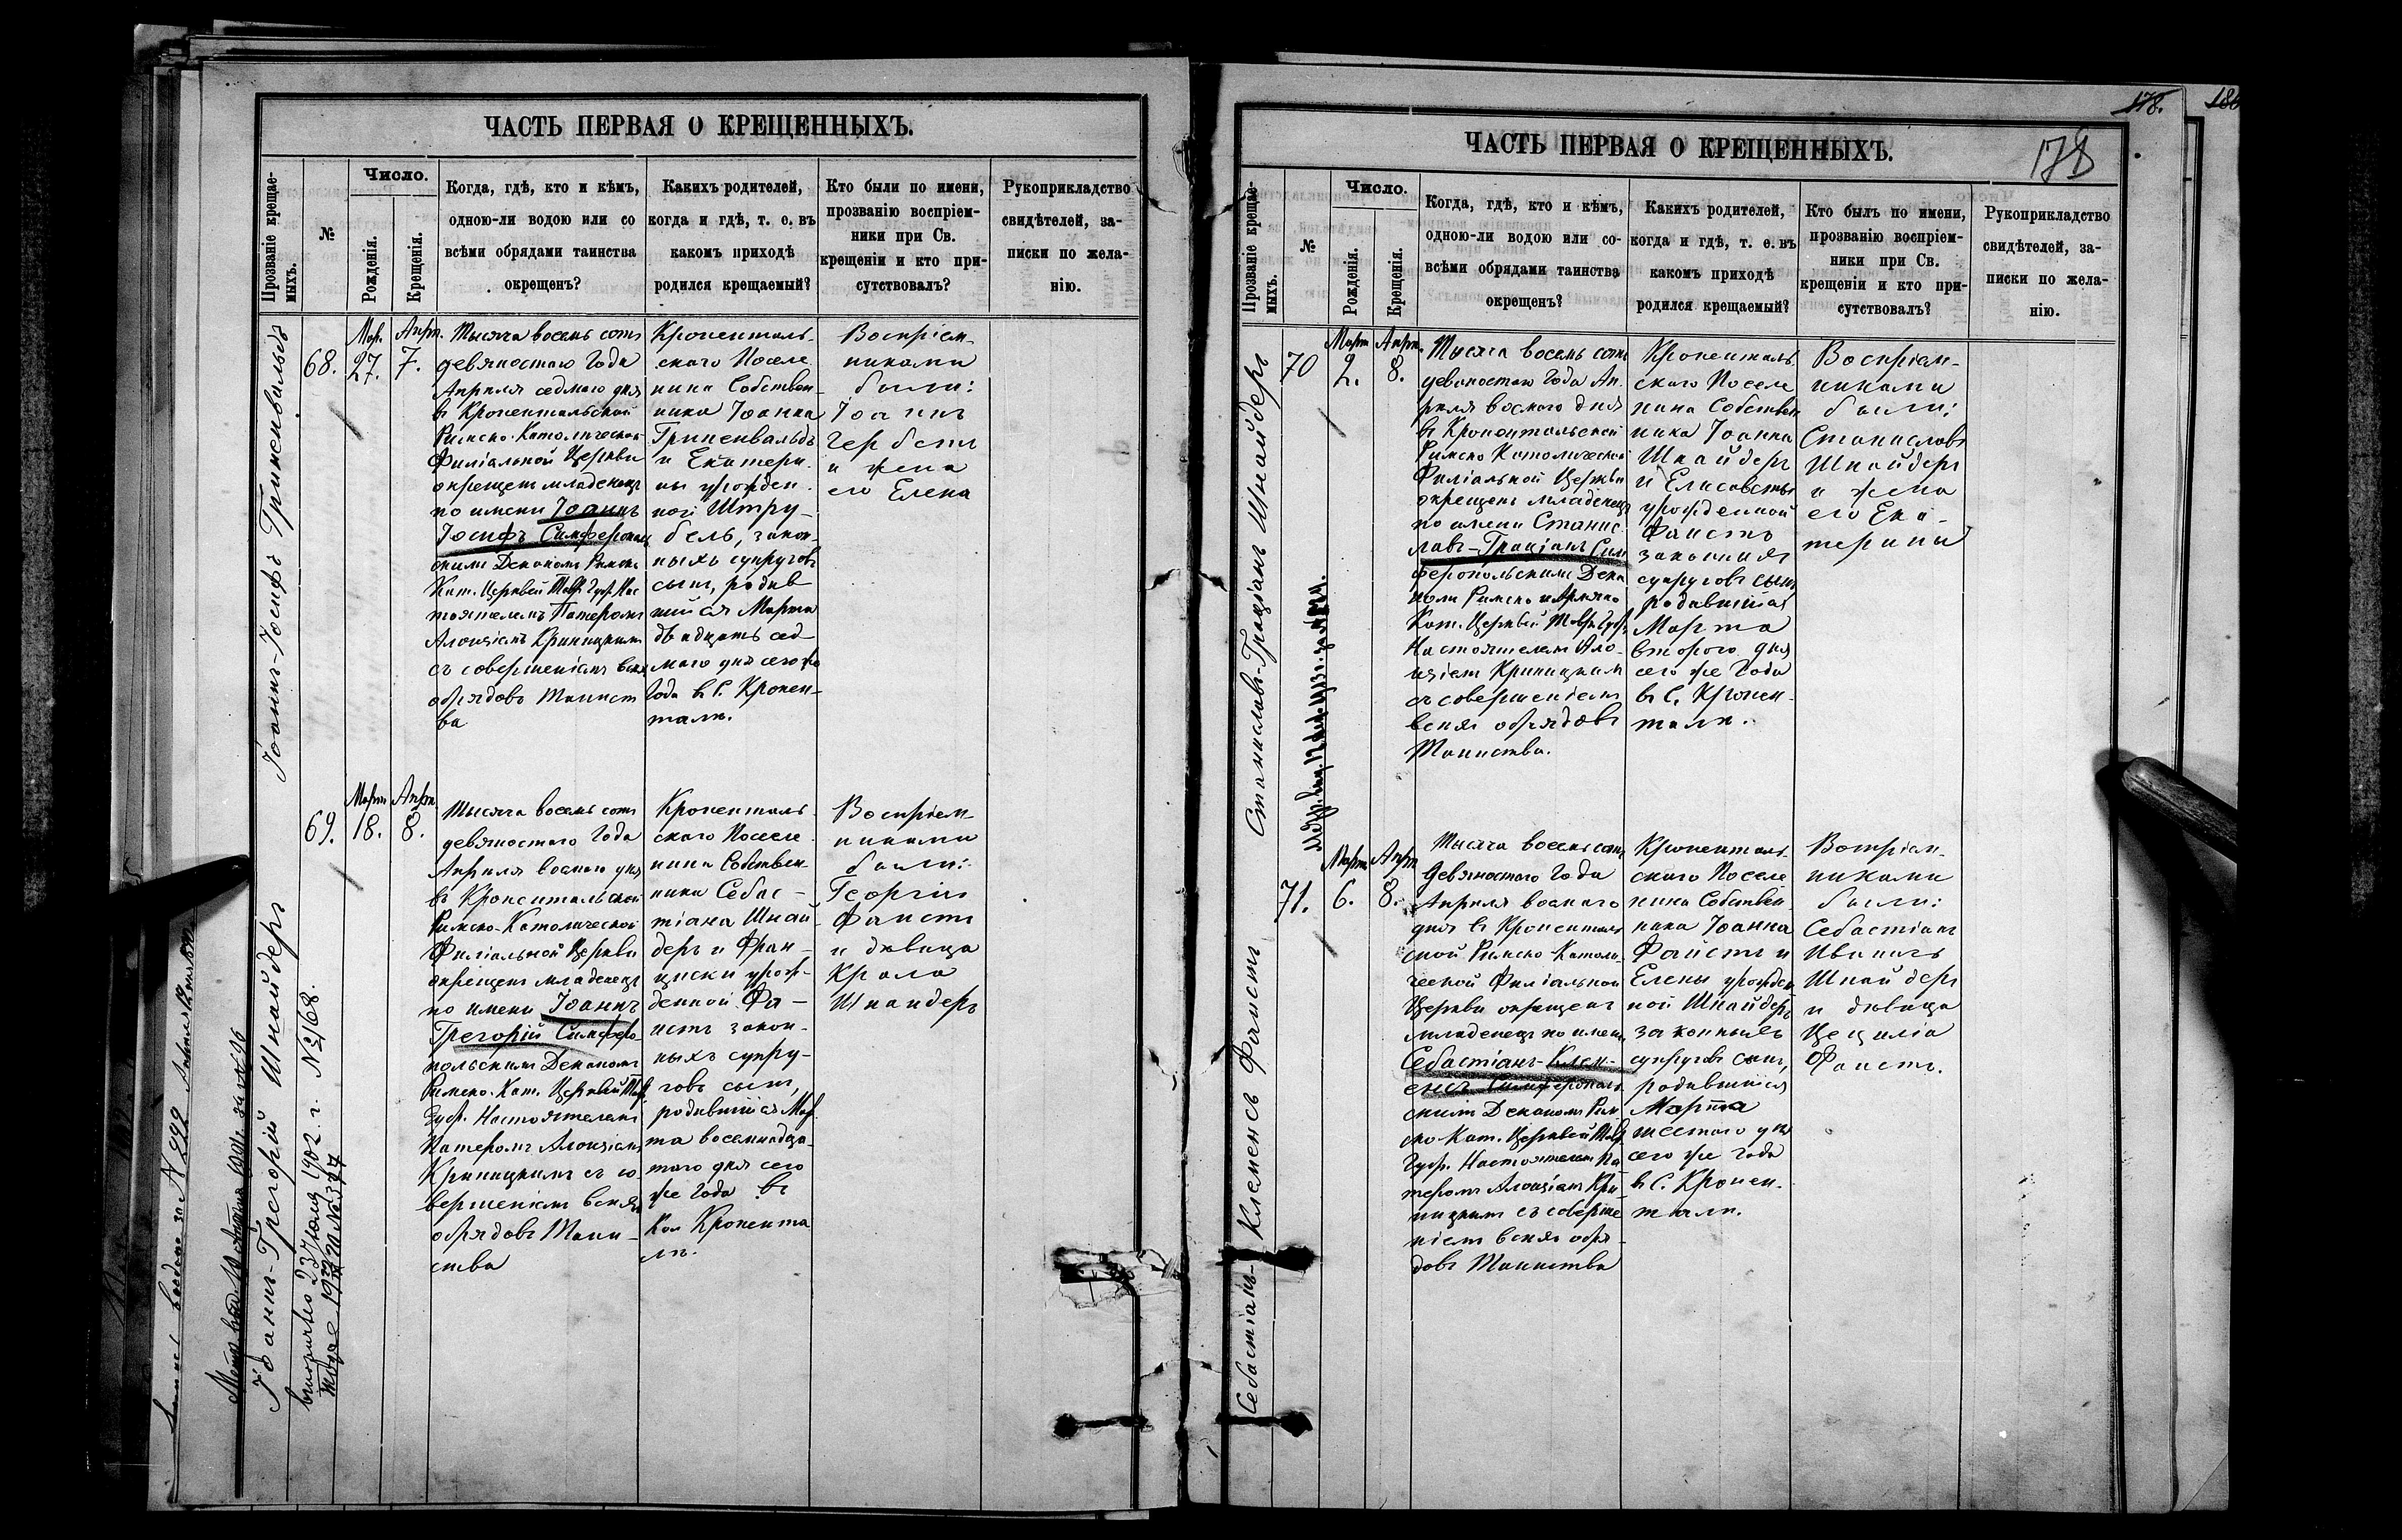 ЧАСТЬ ПЕРВАЯ О КРЕЩЕННЫХЪ.
Прозваніе крещае-
мыхъ.
№
Число.
Рожденія.
Крещенія.
Когда, гдѣ, кто и кѣмъ,
одною-ли водою или со
всѣми обрядами таинства
окрещенъ?
Какихъ родителей,
когда и гдѣ, т. е. въ
какомъ приходѣ
родился крещаемый?
Кто были по имени,
прозванію воспріем-
ники при Св.
крещеніи и кто при-
сутствовалъ?
Рукоприкладство
свидѣтелей, за-
писки по жела-
нію.
Іоаннъ-Іосифъ Гриненвальдъ
68.
Мар.
27.
Апрл.
7.
Тысяча восемь сотъ
девяностаго года
Апрѣля седмаго дня
въ Кронентальской
Римско-Католической
Филіальной Церкви
окрещенъ младенецъ
по имени Іоаннъ
Іосифъ Симферополь
скимъ Деканомъ Римско
Кат. Церквей Тавр. Губ. Нас
тоятелемъ Патеромъ
Алоизіемъ Криницкимъ
съ совершеніемъ всѣхъ
обрядовъ Таинст
ва
Кроненталь-
скаго Поселе
нина Собствен-
ника Іоанна
Гриненвальдъ
и Екатери-
ны урожден-
ной Штру-
бель, закон-
ныхъ супруговъ
сынъ, родив
шийся Марта
двадцать сед-
маго дня сего же
года въ С. Кронен-
тали.
Воспріем-
никами
были:
Іоаннъ
Гербетъ
и жена
его Елена
Іоаннъ-Грегорій Шнайдеръ
69.
Март.
18.
Апрл.
8.
Тысяча восемь сотъ
девяностаго года
Апрѣля восмаго дня
въ Кроентальской
Римско-Католической
Филіальной Церкви
окрещенъ младенецъ
по имени Іоаннъ
Грегорій Симферо
польскимъ Деканомъ
Римско-Кат. Церквей Тав.
Губ. Настоятелемъ
Патеромъ Алоизіемъ
Криницкимъ съ со-
вершеніемъ всѣхъ
обрядовъ Таин-
ства
Кроненталь-
скаго Поселе
нина Собствен
ника Себас-
тіана Шнай
деръ и Фран-
циски урож-
денной Фа-
истъ закон-
ныхъ супру-
говъ сынъ,
родившийся Мар
та восемнадца-
таго дня сего
же года въ
Кол Кронента
ль.
Воспріем-
никами
были:
Георгій
Фаистъ
и дѣвица
Шнайдеръ
выпущено 23 Іюля 1902. г. №168.
№ 377
за № 222
ЧАСТЬ ПЕРВАЯ О КРЕЩЕННЫХЪ.
178.
178
Прозваніе крещае-
мыхъ.
№
Число.
Рожденія.
Крещенія.
Когда, гдѣ, кто и кѣмъ,
одною-ли водою или со-
всѣми обрядами таинства
окрещенъ?
Какихъ родителей,
когда и гдѣ, т. е. въ
какомъ приходѣ
родился крещаемый?
Кто былъ по имени,
прозванію воспріем-
ники при Св.
крещеніи и кто при-
сутствовалъ?
Рукоприкладство
свидѣтелей, за-
писки по жела-
нію.
Станиславъ-Граціанъ Шнайдеръ
70
Март
2.
Апрл.
8.
Тысяча восемь сотъ
девяностаго года Ап-
рѣля восмаго дня
въ Кронентальской
Римско Католической
Филіальной Церкви
окрещенъ младенецъ
по имени Станис
лавъ-Граціанъ Сим
феропольскимъ Дека
номъ Римско и Армяно
Кат. Церквей Тавр. Губ.
Настоятелемъ Ало-
изіемъ Криницкимъ
съ совершеніемъ
всѣхъ обрядовъ
Таинства.
Кроненталь
скаго Поселе
нина Собствен
ника Іоанна
Шнайдеръ
и Елисаветы
урожденной
Фаистъ
законныхъ
супруговъ сынъ
родившийся
Марта
второго дня
сего же года
въ С. Кронен-
тали.
Воспріем-
никами
были:
Станиславъ
Шнайдеръ
и жена
его Ека-
терина
Себастіанъ-Клеменсъ Фаистъ
71.
Март
6.
Апрл
8.
Тысяча восемь сотъ
девяностаго года
Апрѣля восмаго
дня въ Кроненталь
ской Римско-Католи-
ческой Филіальной
Церкви окрещенъ
младенецъ по имени
Себастіанъ-Клем-
енсъ Симферополь
скимъ Деканомъ Рим
ско Кат. Церквей Тав.
Губ. Настоятелемъ Па
теромъ Алоизіемъ Кри
ницкимъ съ соверше
ніемъ всѣхъ обря-
довъ Таинства
Кроненталь-
скаго Поселе
нина Собствен
ника Іоанна
Фаистъ и
Елены урожден
ной Шнайдеръ
законныхъ
супруговъ сынъ,
родившийся
Марта
шестаго дня
сего же года
въ С. Кронен-
тали.
Воспріем-
никами
были:
Себастіанъ
Шнайдеръ
и дѣвица
Цециліа
Фаистъ.